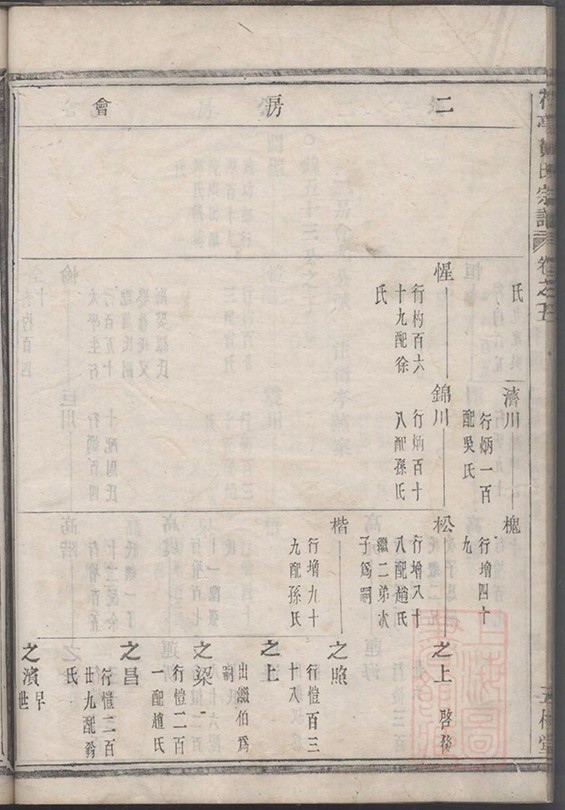 鄭氏宗譜 卷之五
二房會
氏
濟川
行炳一百
配吳氏
槐
行增四十
九
惺
行杓百六
十九配徐
氏
錦川
行炳百十
八配孫氏
松
行增八十
八配趙氏
繼二弟次
子爲嗣
之上
啓發
楷
行增九十
九配孫氏
之照
行愷百三
十八
之上
出繼伯爲
嗣
之梁
行愷二百
一配趙氏
之昌
行愷二百
廿九配翁
氏
之濱
早
世